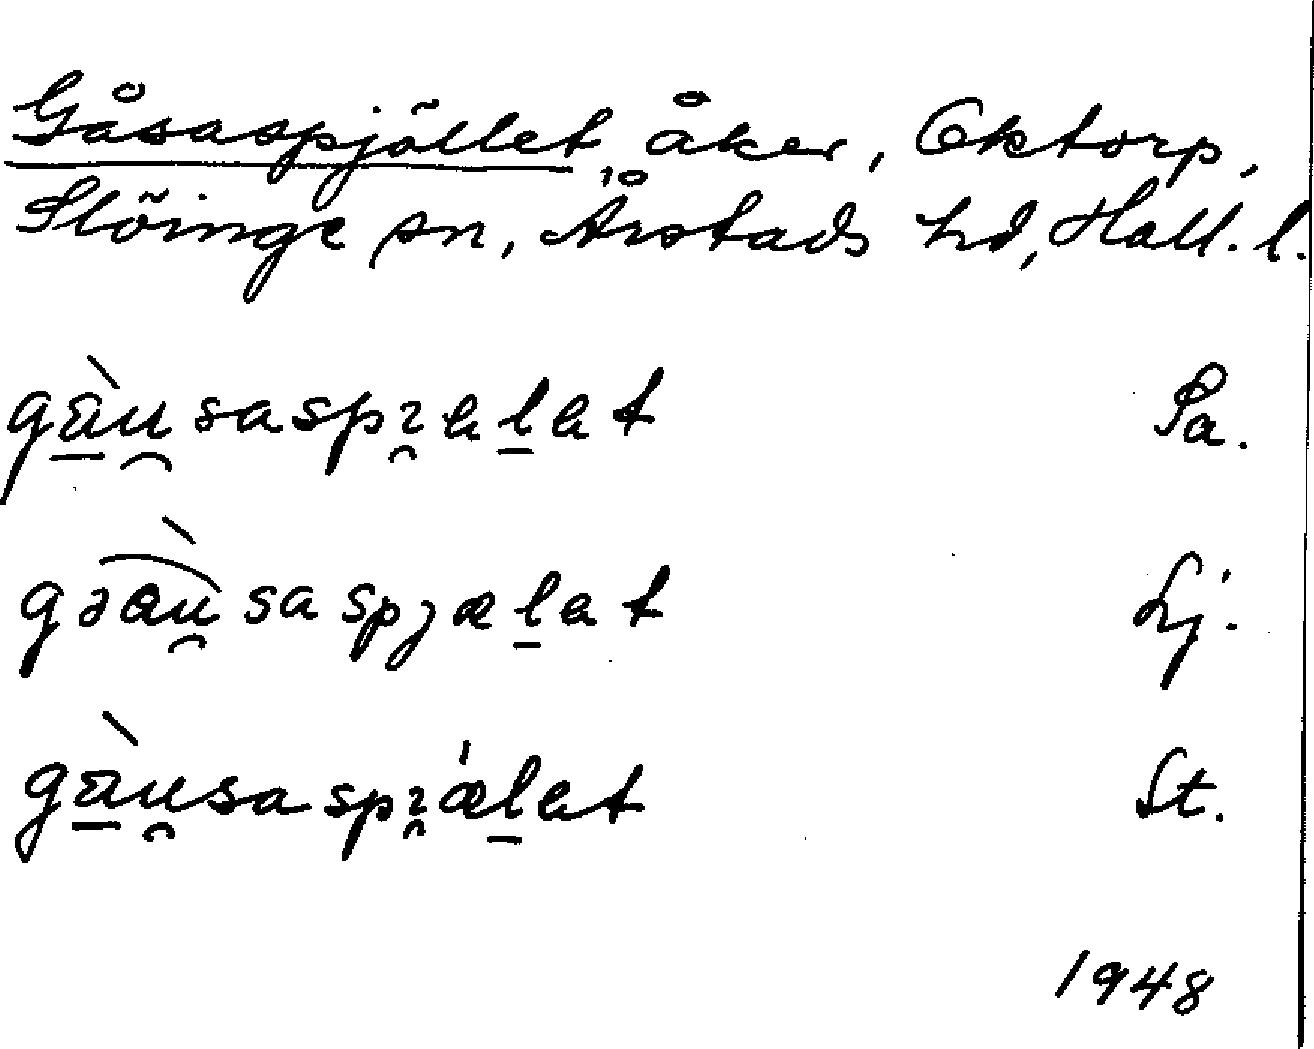 Gåsaspjället, åker, Oktorp,
Slöinge sn, Årstads hd, Hall. l.
gàu̯saspi̯elet Sa.
gəàu̯saspjælet Lj.
gàu̯saspi̯ǽlet St.
1948